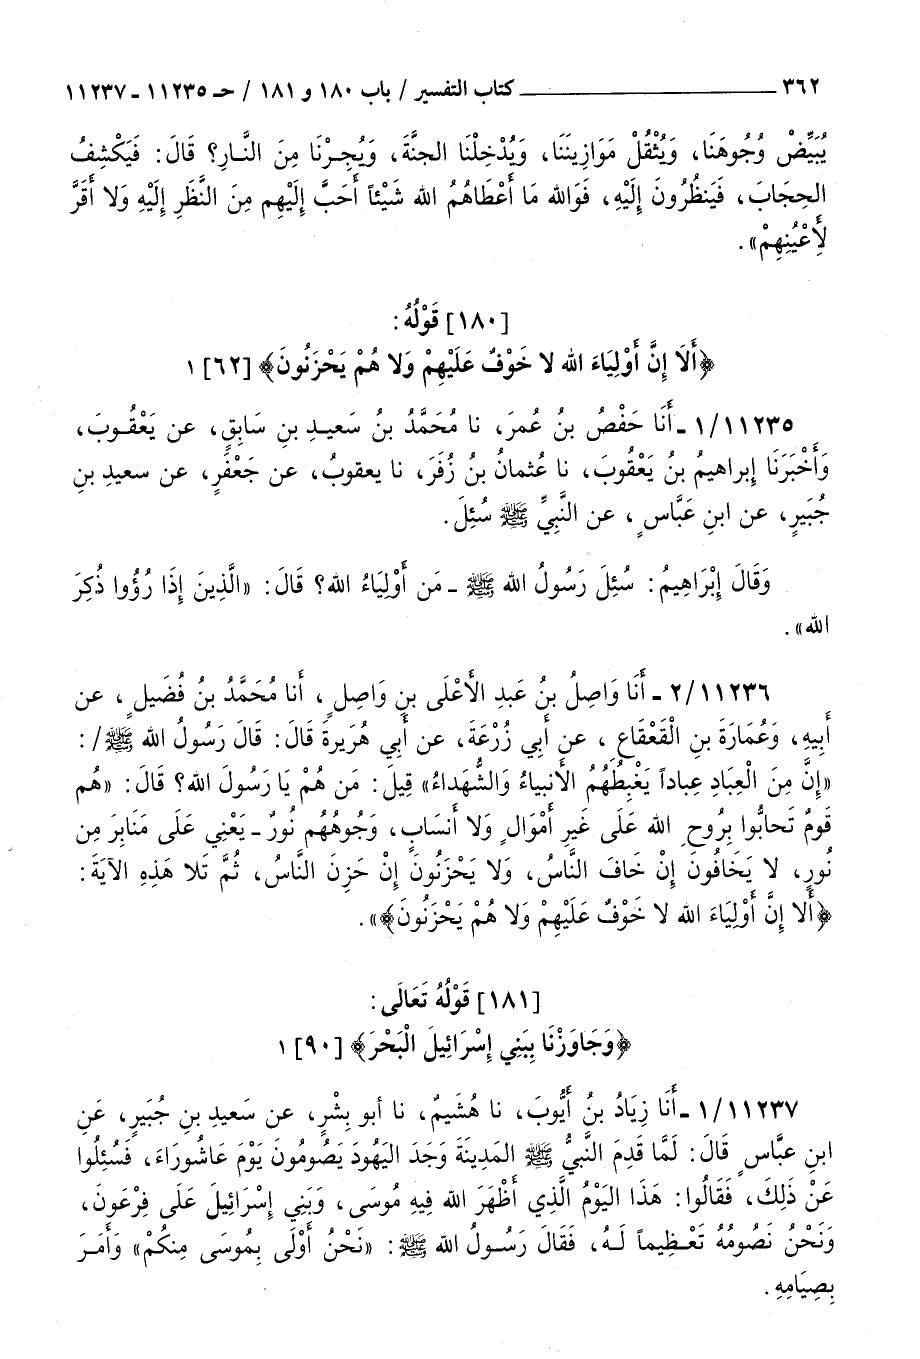 ٣٦٢ ــــــــــــــــــــــــــــــــــــ كتاب التفسير / باب ١٨٠ و ١٨١ / حـ ١١٢٣٥ ـ ١١٢٣٧
يُبَيِّضْ وُجُوهَنَا، وَيُثْقُلْ مَوَازِينَنَا، وَيُدْخِلْنَا الجنَّةَ، وَيُجِرْنَا مِنَ النَّارِ؟ قَالَ: فَيَكْشِفُ
الحِجَابَ، فَيَنظُرُونَ إِلَيْهِ، فَوَالله مَا أَعْطَاهُمُ الله شَيْئاً أَحَبَّ إِلَيْهِم مِنَ النَّظَرِ إِلَيْهِ وَلا أَقَرَّ
لِأَعْيُنِهِمْ».
[١٨٠] قَوْلُهُ:
﴿أَلَا إِنَّ أَوْلِيَاءَ الله لا خَوْفٌ عَلَيْهِمْ وَلا هُمْ يَحْزَنُونَ﴾ [٦٢] ١
١/١١٢٣٥ ـ أَنَا حَفْصُ بنُ عُمَرَ، نا مُحَمَّدُ بنُ سَعيدِ بنِ سَابِقٍ، عن يَعْقُوبَ،
وَأَخْبَرَنَا إبراهيمُ بنُ يَعْقُوبَ، نا عُثمانُ بنُ زُفَرَ، نا يعقوبُ، عن جَعْفَرٍ، عن سعيدِ بنِ
جُبَيرٍ، عن ابنِ عَبَّاسٍ، عن النَّبِيِّ ﷺ سُئِلَ.
وَقَالَ إِبْرَاهِيمُ: سُئِلَ رَسُولُ الله ﷺ ـ مَن أَوْلِيَاءُ الله؟ قَالَ: «الَّذِينَ إِذَا رُؤُوا ذُكِرَ
الله».
٢/١١٢٣٦ ـ أَنَا وَاصِلُ بنُ عَبدِ الأَعْلَى بنِ وَاصِلٍ، أَنا مُحَمَّدُ بنُ فُضَيلٍ، عن
أَبِيهِ، وَعُمَارَةَ بنِ الْقَعْقَاعِ، عن أَبي زُرْعَةَ، عن أَبي هُرَيرةَ قَالَ: قَالَ رَسُولُ الله ﷺ/:
«إِنَّ مِنَ الْعِبَادِ عِباداً يَغْبِطُهُمُ الأَنبياءُ وَالشُّهَداءُ» قِيلَ: مَن هُمْ يَا رَسُولَ الله؟ قَالَ: «هُم
قَومٌ تَحابُّوا بِرُوحِ الله عَلَى غَيرِ أَمْوَالٍ وَلا أَنسَابٍ، وَجُوهُهُم نُورٌ ـ يَعْنِي عَلَى مَنَابِرَ مِن
نُورٍ، لا يَخَافُونَ إِنْ خَافَ النَّاسُ، وَلا يَحْزَنُونَ إِنْ حَزِنَ النَّاسُ، ثُمَّ تَلا هَذِهِ الآيَةَ:
﴿أَلا إِنَّ أَوْلِيَاءَ الله لا خَوْفٌ عَلَيْهِمْ وَلا هُمْ يَحْزَنُونَ﴾».
[١٨١] قَوْلُهُ تَعَالَى:
﴿وَجَاوَزْنَا بِبَنِي إِسْرَائِيلَ الْبَحْرَ﴾ [٩٠] ١
١/١١٢٣٧ ـ أَنَا زِيَادُ بنُ أَيُّوبَ، نا هُشَيمٌ، نا أبو بِشْرٍ، عن سَعيدِ بنِ جُبَيرٍ، عَنِ
ابنِ عبَّاسٍ قَالَ: لَمَّا قَدِمَ النَّبيُّ ﷺ المَدِينَةَ وَجَدَ اليَهُودَ يَصُومُونَ يَوْمَ عَاشُورَاءَ، فَسُئِلُوا
عَنْ ذَلِكَ، فَقَالُوا: هَذَا اليَوْمُ الَّذِي أَظْهَرَ الله فِيهِ مُوسَى، وَبَنِي إِسْرَائِيلَ عَلَى فِرْعَونَ،
وَنَحْنُ نَصُومُهُ تَعْظِيماً لَهُ، فَقَالَ رَسُولُ الله ﷺ: «نَحْنُ أَوْلَى بِمُوسَى مِنكُمْ» وَأَمَرَ
بِصِيَامِهِ.